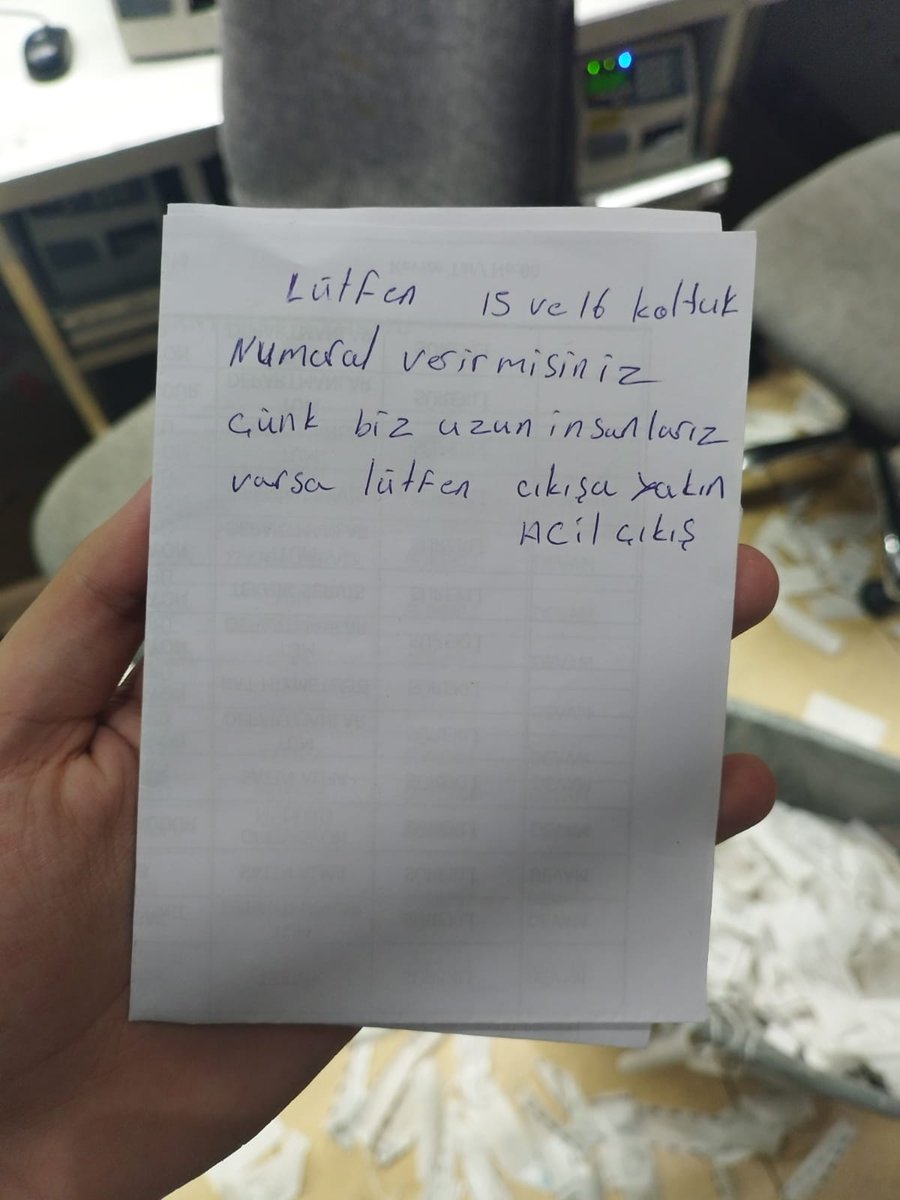 Lütfen 15 ve 16 koltuk
Numaral verirmisiniz
Çünk biz uzun insanlarız
varsa lütfen çıkışa yakın
Acil çıkış